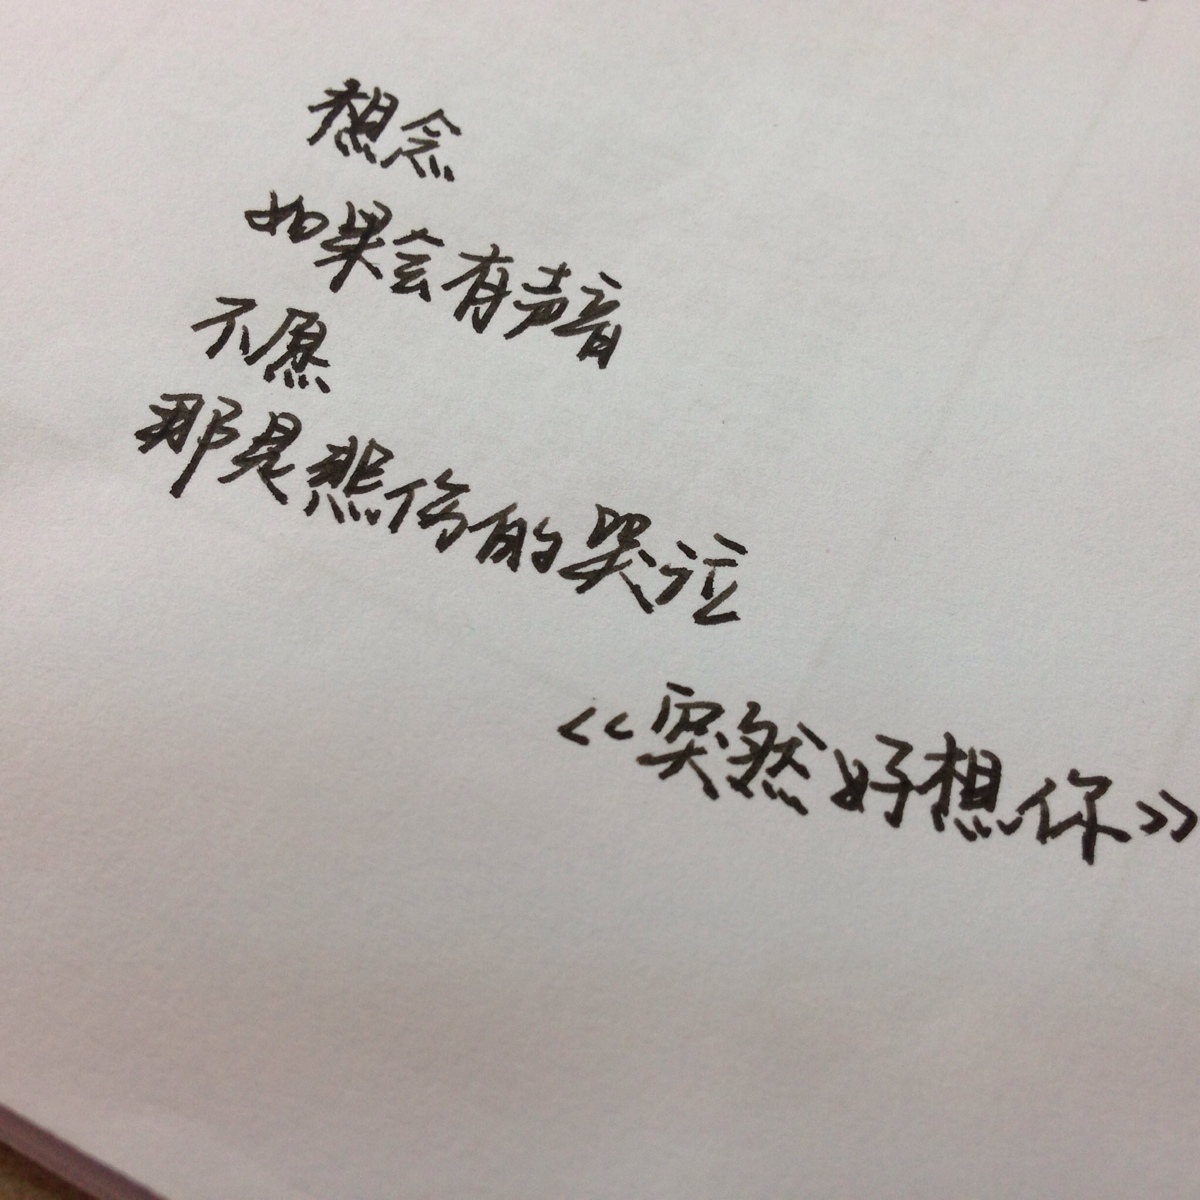 想念
如果会有声音
不愿
那是悲伤的哭泣
<<突然好想你>>